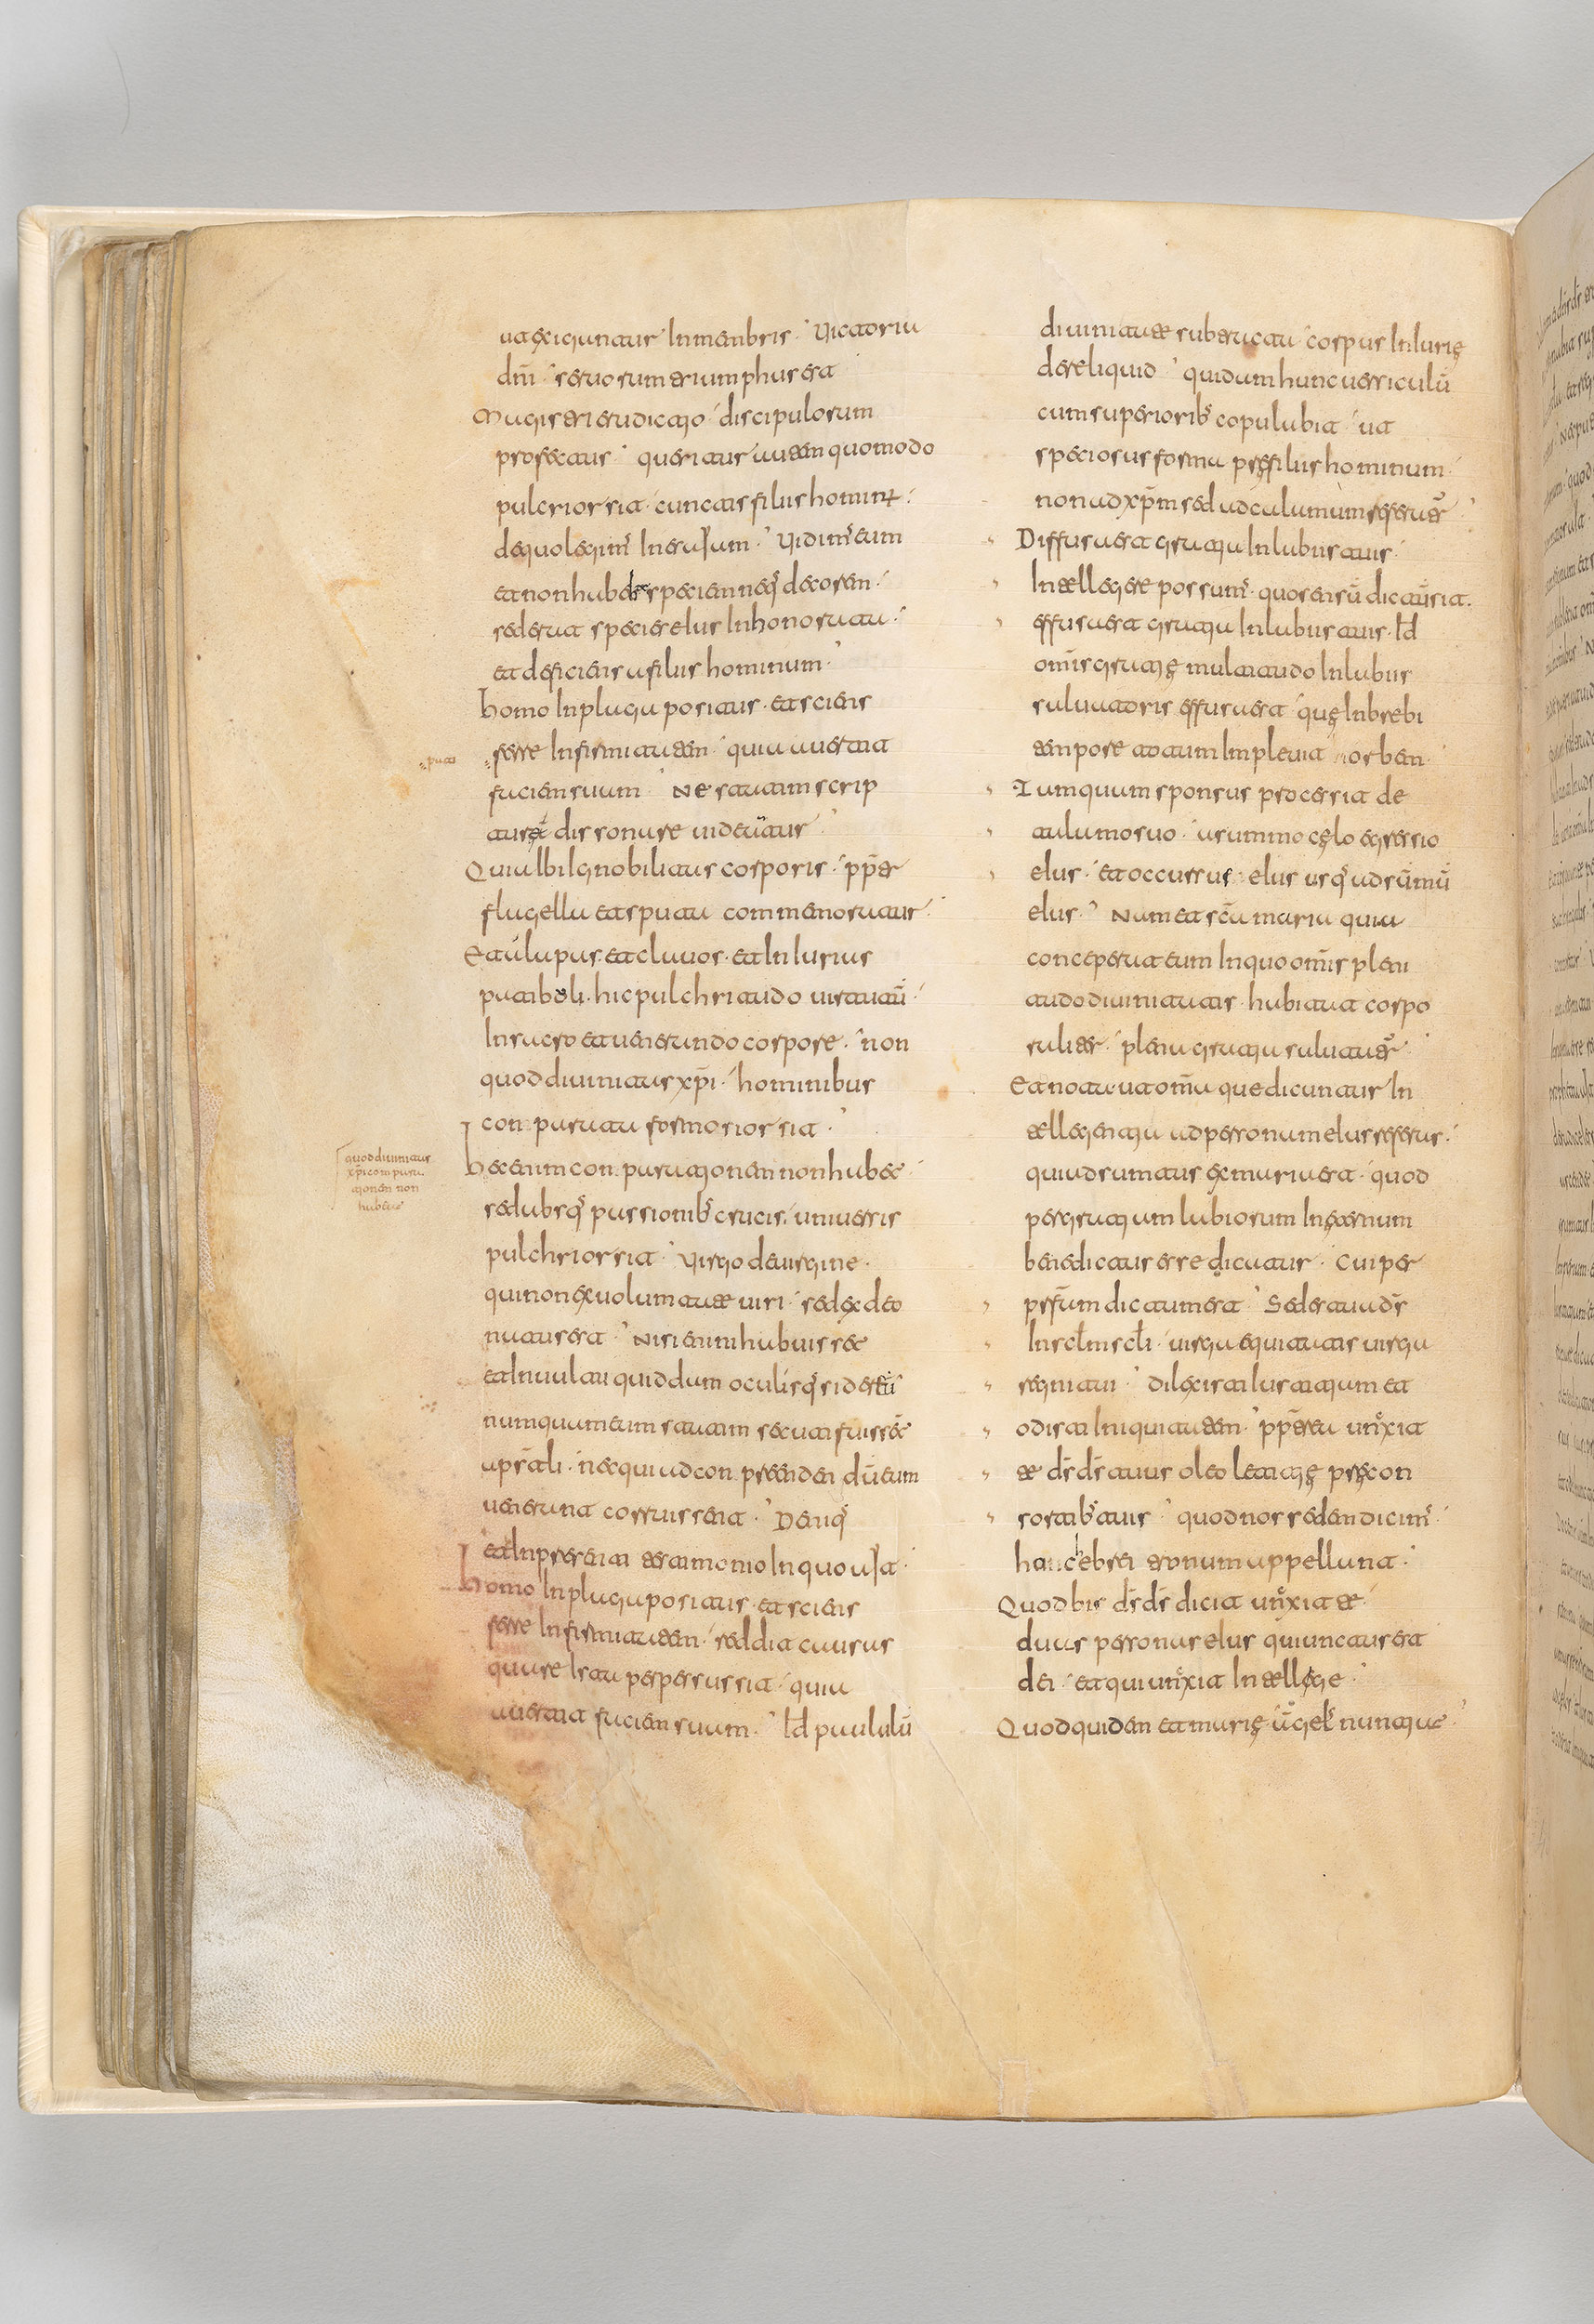 ta exiguntur in menbris. Victoria
dn̄i seruorum triumphus est
Magistri eruditio discipulorum
profectus. queritur autem quomodo
pulcrior sit cunctis filiis hominū
de quo legim' in esaiam. Vidim' eum
et non habebat speciem neq' decorem.
sed erat species eius inhonorata
et deficiens a filiis hominum.
homo in plaga positus. et sciens
ferre infirmitatem. quia auertit
faciem suam. Ne statim scrip
tura dissonare uideatur
Quia ibi ignobilitas corporis. pp̄ter
flagella et sputa commemoratur.
Et alapas. et clauos. et iniurias
patiboli. hic pulchritudo uirtutū.
in sacro et uenerando corpore. non
quod diuinitas xp̄i. hominibus
conparata formosior sit.
hec enim conparationem non habet
quod diuinitas
xp̄i conpara
tionem non
habeat
sed absq' passionib' crucis. uniuersis
pulchrior sit. Virgo de uirgine.
qui non ex uolumtate uiri. sed ex deo
natus est. Nisi enim habuisset
et in uultu quiddam oculisq' sidereū
numquam eum statim secuti fuissēt
apsāli. nec qui ad conpreendendū eum
uenerunt corruissent. Deniq'
et in presenti testimonio in quo ait.
homo in plaga positus. et sciens
ferre infirmitatem. reddit causas
quare ista perpessus sit. quia
auertit faciem suam. Id paululū
diuinitate subtracta. corpus iniurię
dereliquid. quidam hunc uersiculū
cum superiorib' copulabit. ut
speciosus forma pręfiliis hominum.
non ad xp̄m sed ad calamum referatur
Diffusa est gratia in labiis tuis.
Intellegere possum'. quo sensū dictū sit.
effusa est gratia in labiis tuis. Id
om̄is gratię multitudo in labiis
saluatoris effusa est. quę in brebi
tempore totum impleuit orbem.
Tamquam sponsus processit de
talamo suo. a summo cęlo egressio
eius. et occursus eius usq' ad sūmū
eius. Nam et scā maria quia
conceperat eum in quo om̄is pleni
tudo diuinitatis habitat corpo
raliter. plena gratia salutatur
Et nota ut om̄ia que dicuntur in
tellegentia ad personam eius referas.
qui adsumtus ex maria est. quod
per gratiam labiorum in ęternum
benedictus esse dicatur. Cui per
psāl̄mum dictum est. Sedes tua ds̄
in sclm̄ scl̄i. uirga equitatis uirga
regni tui. dilexisti iustitiam et
odisti iniquitatem. pp̄terea unxit
te ds̄ ds̄ tuus oleo letitię pręcon
sortib' tuis. quod nos sedem dicim'.
hanc hebrei tronum appellant.
Quod bis ds̄ ds̄ dicit unxit te.
duas personas eius qui unctus est
dei. et qui unxit intellege.
Quod quidem et marię ūgel nuntiat.